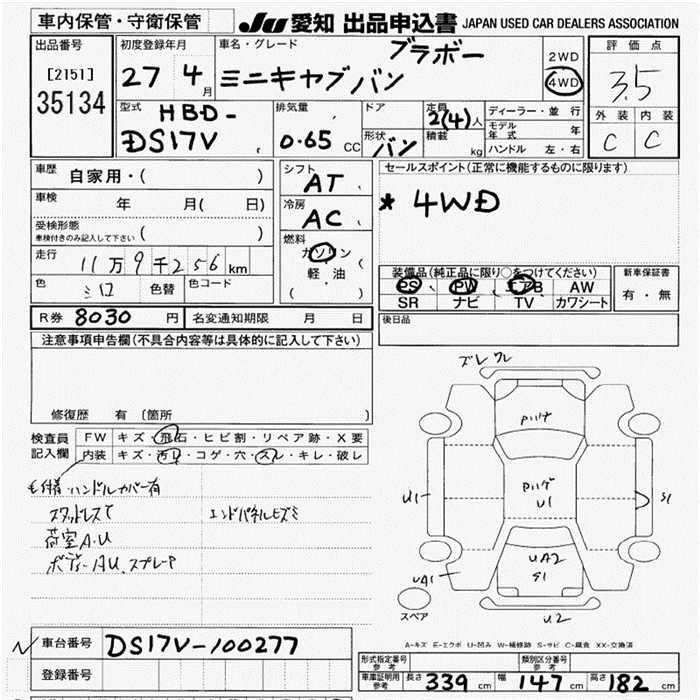 車内保管・守衛保管
JU 愛知 出品申込書 JAPAN USED CAR DEALERS ASSOCIATION
出品番号
[2151]
35134
初度登録年月
27 4月
車名・グレード
ブラボー
ミニキャブバン
2WD
4WD
評価点
3.5
外装 内装
C C
型式
HBD-
DS17V
排気量
0.65 CC
ドア
形状
バン
定員
2(4)人
積載 kg
ディーラー・並行
モデル年式 年
ハンドル 左・右
車歴
自家用・( )
車検
年 月( 日)
受検形態
車検付きのみ記入して下さい ( )
走行
11万9千256km
色
シロ
色替
色コード
シフト
AT
冷房
AC
燃料
ガソリン
軽・油
( )
セールスポイント(正常に機能するものに限ります)
* 4WD
装備品(純正品に限り○をつけてください)
PS PW エアB AW
SR ナビ TV カワシート
新車保証書
有・無
後日品
R券 8030 円
名変通知期限 月 日
注意事項申告欄(不具合内容等は具体的に記入して下さい)
修復歴 有 〔箇所 〕
検査員
記入欄
FW キズ・飛石・ヒビ割・リペア跡・X要
内装 キズ・汚レ・コゲ・穴・スレ・キレ・破レ
ハンドルカバー有
スタッドレス
エンドパネルヒズミ
荷室A・U
ボディーAU、スプレーP
ズレ ワレ
Pハゲ
Pハゲ
U1
U1
S1
UA2
S1
UA1
スペア
U2
A-キズ E-エクボ U-凹み W-補修跡 S-サビ C-腐食 XX-交換済
車台番号
DS17V-100277
登録番号
形式指定番号
参考
類別区分番号
参考
車庫証明用
参考
長さ 339 cm 幅 147 cm 高さ 182 cm